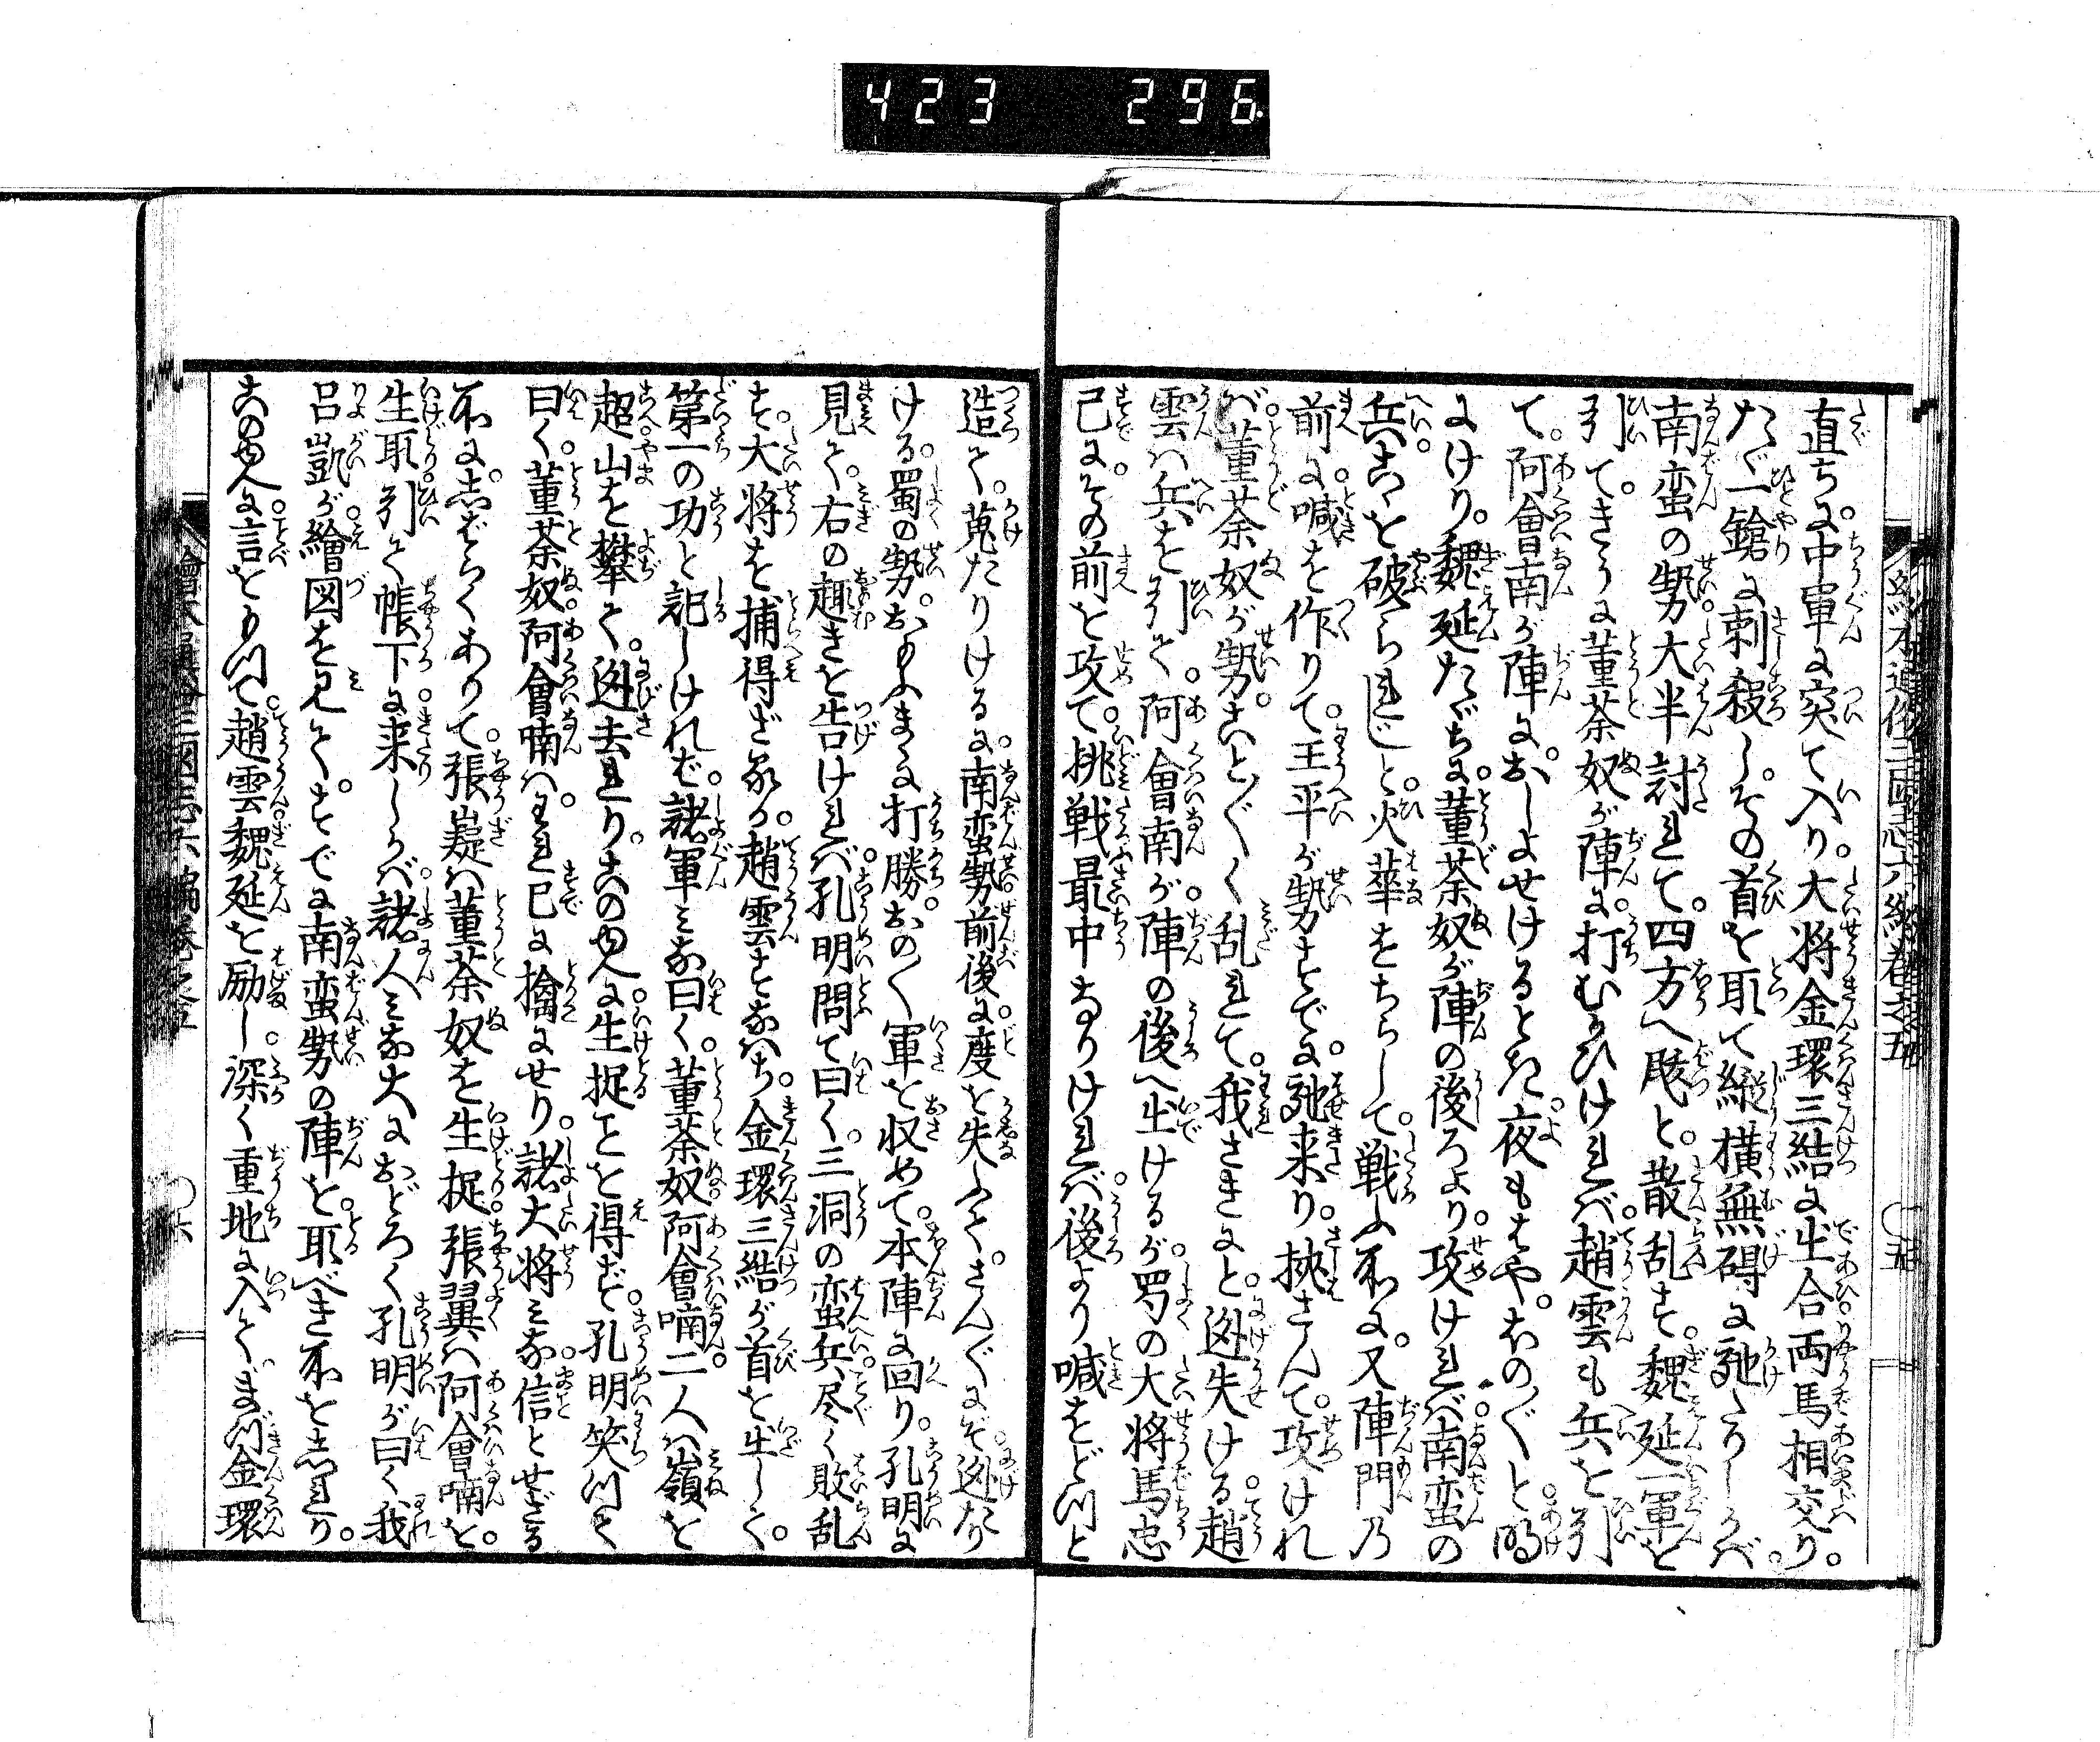 423 296
直ちに中軍に突て入り。大将金環三結に出合両馬相交り。
たゞ一鎗に刺殺し。その首を取て縦横無碍に馳たりしかバ。
南蛮の勢大半討れて。四方へ𢌞と。散乱す。魏延一軍を
引て。きうに董荼奴が陣に。打むかひけれバ。趙雲も兵を引
て。阿會南が陣に。おしよせけるとき。夜もはや。ほのぐと明
にけり。魏延たゞちに。董荼奴が陣の後ろより。攻けれバ。南蛮の
兵。こゝを破られじと。火華をちらして。戦ふ所に。又陣門乃
前に。喊を作りて。王平が勢すでに。馳来り。挟さんて。攻けれ
バ。董荼奴が勢。ことぐく乱れて。我さきにと。迯失ける。趙
雲ハ兵を引て。阿會南が。陣の後へ出けるが。蜀の大将馬忠
已に。その前を攻て。挑戦最中なりけれバ。後より喊をどつと
造て。蒐たりけるに。南蛮勢前後に。度を失ふて。さんぐにぞ。迯たり
ける。蜀の勢。おもふまゝに打勝。おのく軍を収めて。本陣に回り。孔明に
見て。右の趣きを告けれバ。孔明問て曰く。三洞の蛮兵。尽く敗乱
す。大将を捕得ざるか。趙雲すなハち。金環三結が首を出しく。
第一の功と記しけれバ。諸軍ミな曰く。董荼奴。阿會喃。二人ハ嶺を
超。山を攀て。迯去れり。この両人に。生捉ことを得ず。孔明。笑つて
曰く。董荼奴。阿會喃ハ。われ已に擒にせり。諸大将ミな。信とせざる
所に。志ばらくありて。張嶷ハ董荼奴を生捉。張翼ハ阿會喃を。
生取。引て帳下に。来りしかバ。諸人ミな大におどろく。孔明が曰く我
呂凱が。繪図を見て。すでに南蛮勢の陣を。取べき所を志れり。
この両人に。言をもつて。趙雲。魏延を励し。深く重地に入て。まづ金環